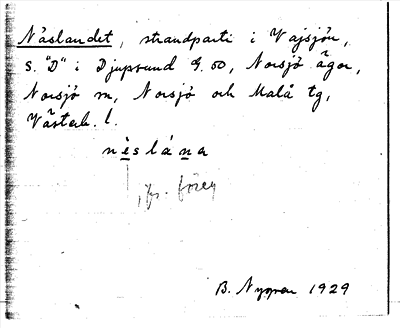 Näslandet, strandparti i Vajsjön,
S. "D" i Djupsund G. 50, Norsjö ägor,
Norsjö sn, Norsjö och Malå tg,
Västerb. l.
nèslána
jfr föreg
B. Nygren 1929